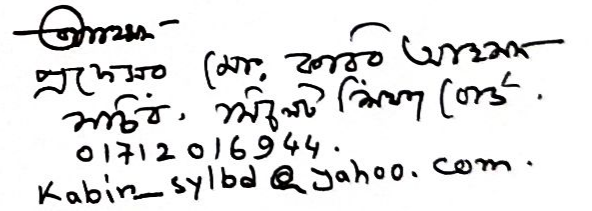 আহমদ
প্রফেসর মো. কবির আহমদ
সচিব, সিলেট শিক্ষা বোর্ড.
01712016944.
Kabir_sylbd@yahoo.com.